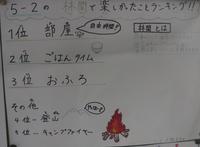 5-2の 林間で楽しかったことランキング!!
1位 部屋
自由時間!
林間とは
2位 ごはんタイム
3位 おふろ
その他
4位-登山
5位-キャンプファイヤー